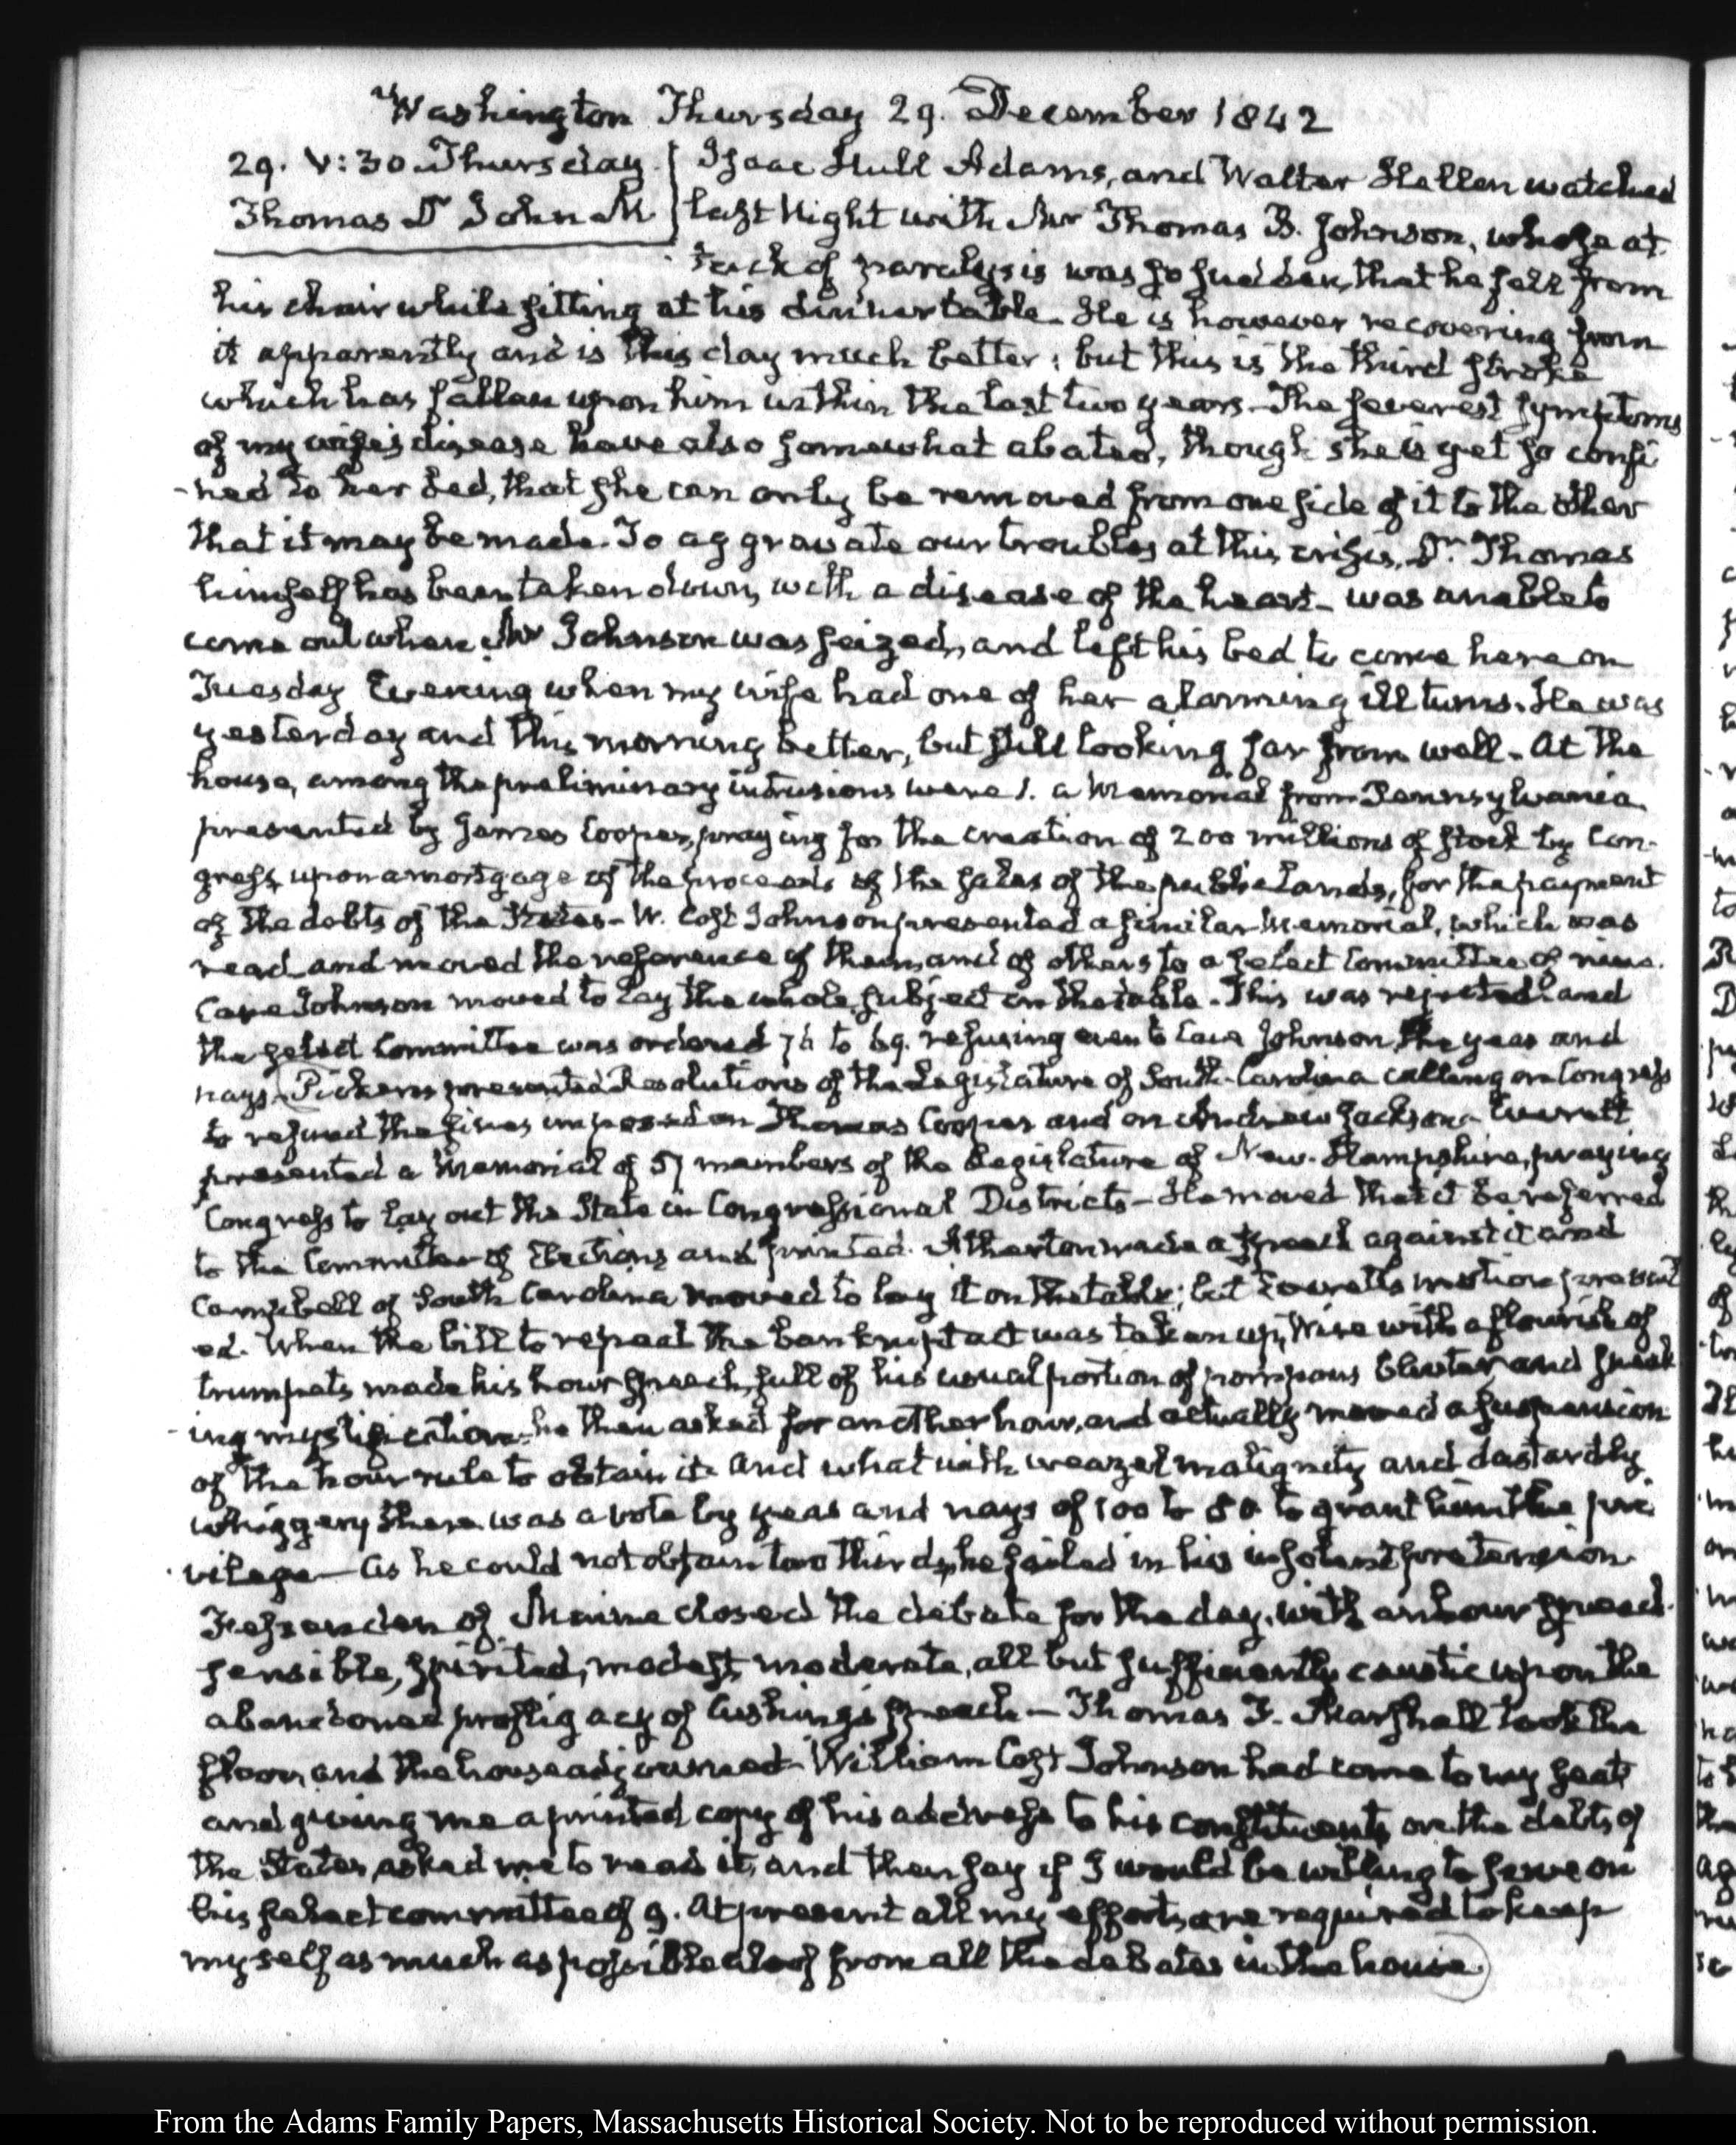 Washington Thursday 29. December 1842
29. V:30. Thursday
Thomas Dr John M
Isaac Hull Adams, and Walter Hellen watched
last Night with Mr Thomas B. Johnson, whose at
tack of paralysis was so sudden, that he fell from
his chair while sitting at his dinner table. He is however recovering from
it apparently and is this day much better: but this is the third stroke
which has fallen upon him within the last two years. The severest symptoms
of my wife's disease have also somewhat abated, though she is yet so confi
-ned to her bed, that she can only be removed from one side of it to the other
that it may be made. To aggravate our troubles at this crisis, Dr. Thomas
himself has been taken down, with a disease of the heart— was unable to
come out when Mr Johnson was seized, and left his bed to come here on
Tuesday Evening when my wife had one of her alarming ill turns. He was
yesterday and this morning better, but still looking far from well. At the
house, among the preliminary intrusions were 1. a Memorial from Pennsylvania
presented by James Cooper, praying for the creation of 200 millions of stock by Con-
gress, upon a mortgage of the proceeds of the sales of the public Lands, for the payment
of the debts of the States— W. Cost Johnson presented a similar Memorial, which was
read and moved the reference of them, and of others to a select Committee of nine.
Cave Johnson moved to lay the whole subject on the table. This was rejected and
the select Committee was ordered to 69. refusing even to Cave Johnson the yeas and
nays. Pickens presented Resolutions of the Legislature of South-Carolina calling on Congress
to refund the fines imposed on Thomas Cooper and on Andrew Jackson— Everett
presented a Memorial of 57 members of the Legislature of New-Hampshire, praying
Congress to lay out the State in Congressional Districts— He moved that it be referred
to the Committee of Elections and printed. Atherton made a speech against it and
Campbell of South Carolina moved to lay it on the table; but Everetts motion prevail
ed. When the bill to repeal the bankrupt act was taken up, Wise with a flourish of
trumpets made his hour speech, full of his usual portion of pompous bluster, and sneak
-ing mystification. he then asked for another hour, and actually moved a suspension
of the hour rule to obtain it. and what with weazel malignity and dastardly
whiggery there was a vote by yeas and nays of 100 to 80 to grant him the pri
-vilege— As he could not obtain two thirds, he failed in his insolent pretension.
Fessenden of Maine closed the debate for the day, with an hour speech.
sensible, spirited, modest, moderate, all but sufficiently caustic upon the
abandoned profligacy of Cushing's speech— Thomas F. Marshall took the
floor, and the house adjourned. William Cost Johnson had come to my seat
and giving me a printed copy of his address to his constituents on the debts of
the States, asked me to read it, and then say if I would be willing to serve on
his select committee of 9. At present all my efforts, are required to keep
myself as much as possible aloof from all the debates in the house
From the Adams Family Papers, Massachusetts Historical Society. Not to be reproduced without permission.